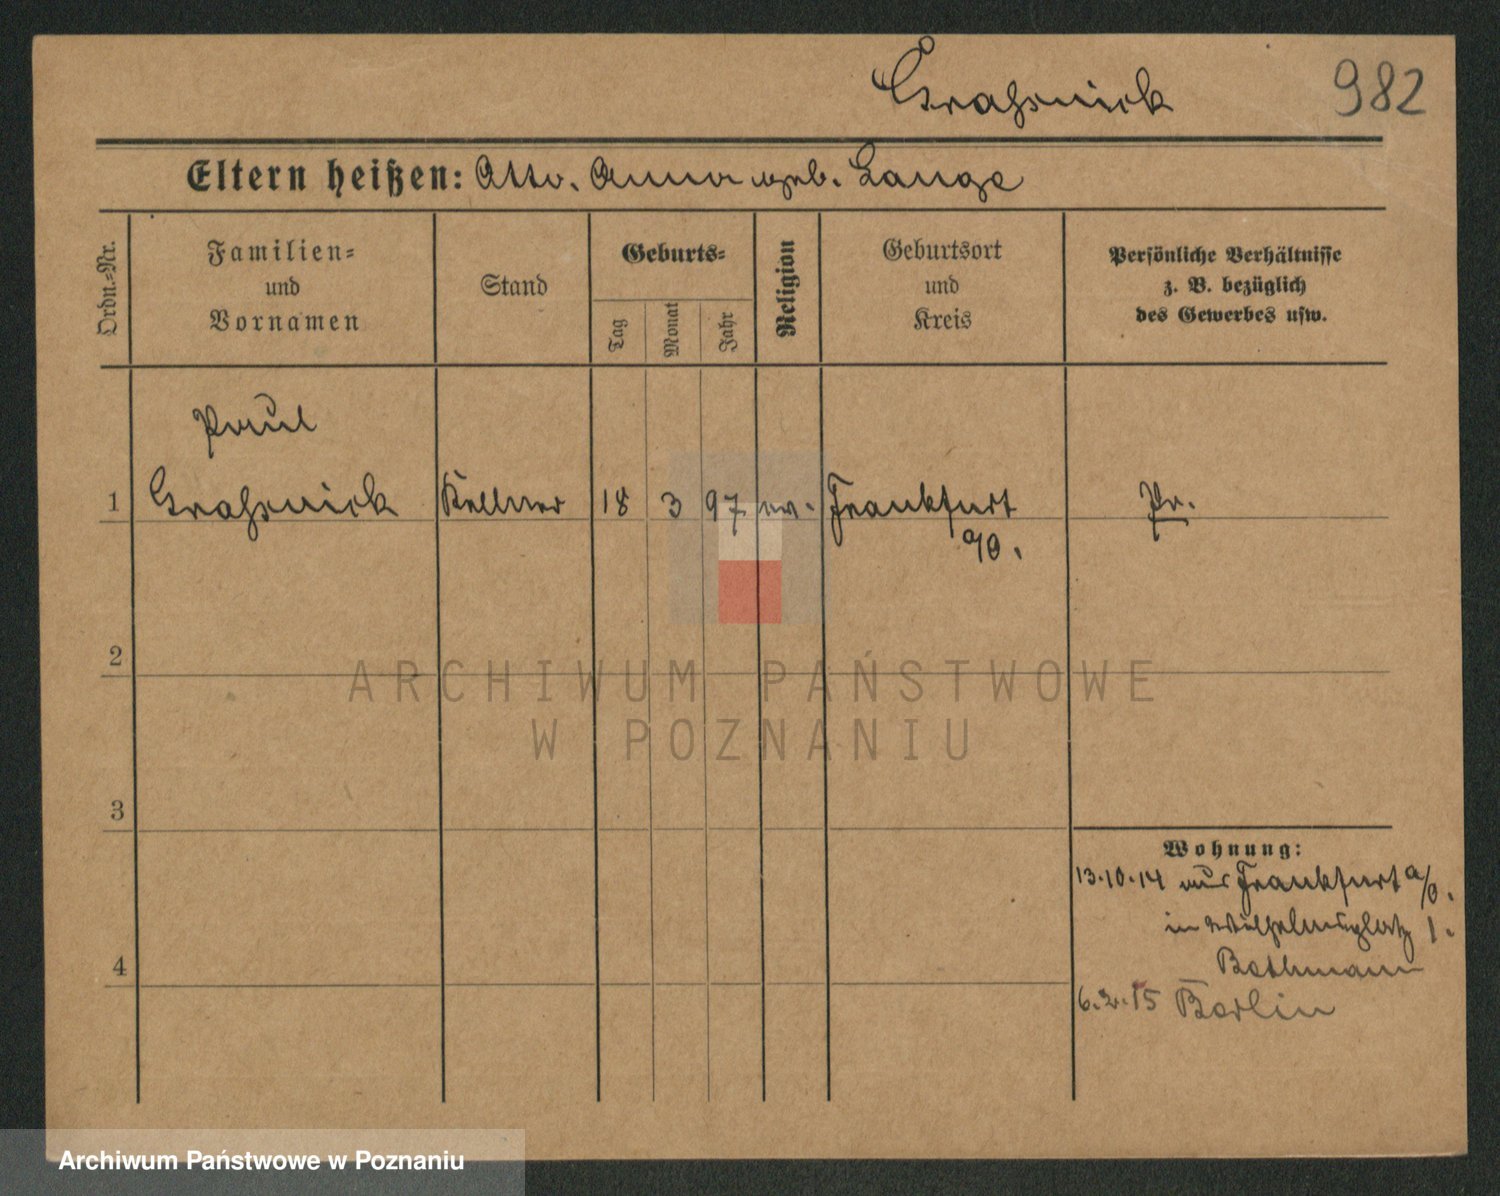 Grahsnick
982
Eltern heißen: Otto. Anna geb. Lange
Ordn.-Nr.
Familien=
und
Vornamen
Stand
Geburts=
Tag
Monat
Jahr
Religion
Geburtsort
und
Kreis
Persönliche Verhältnisse
z. B. bezüglich
des Gewerbes usw.
Paul
1 Grahsnick Kellner 18 3 97 ev. Frankfurt Pr.
a/O.
2
3
4
Wohnung:
13.10.14 aus Frankfurt a/O.
in Wilhelmsplatz 1.
Bethmann
6.2.15 Berlin
ARCHIWUM PAŃSTWOWE
W POZNANIU
Archiwum Państwowe w Poznaniu